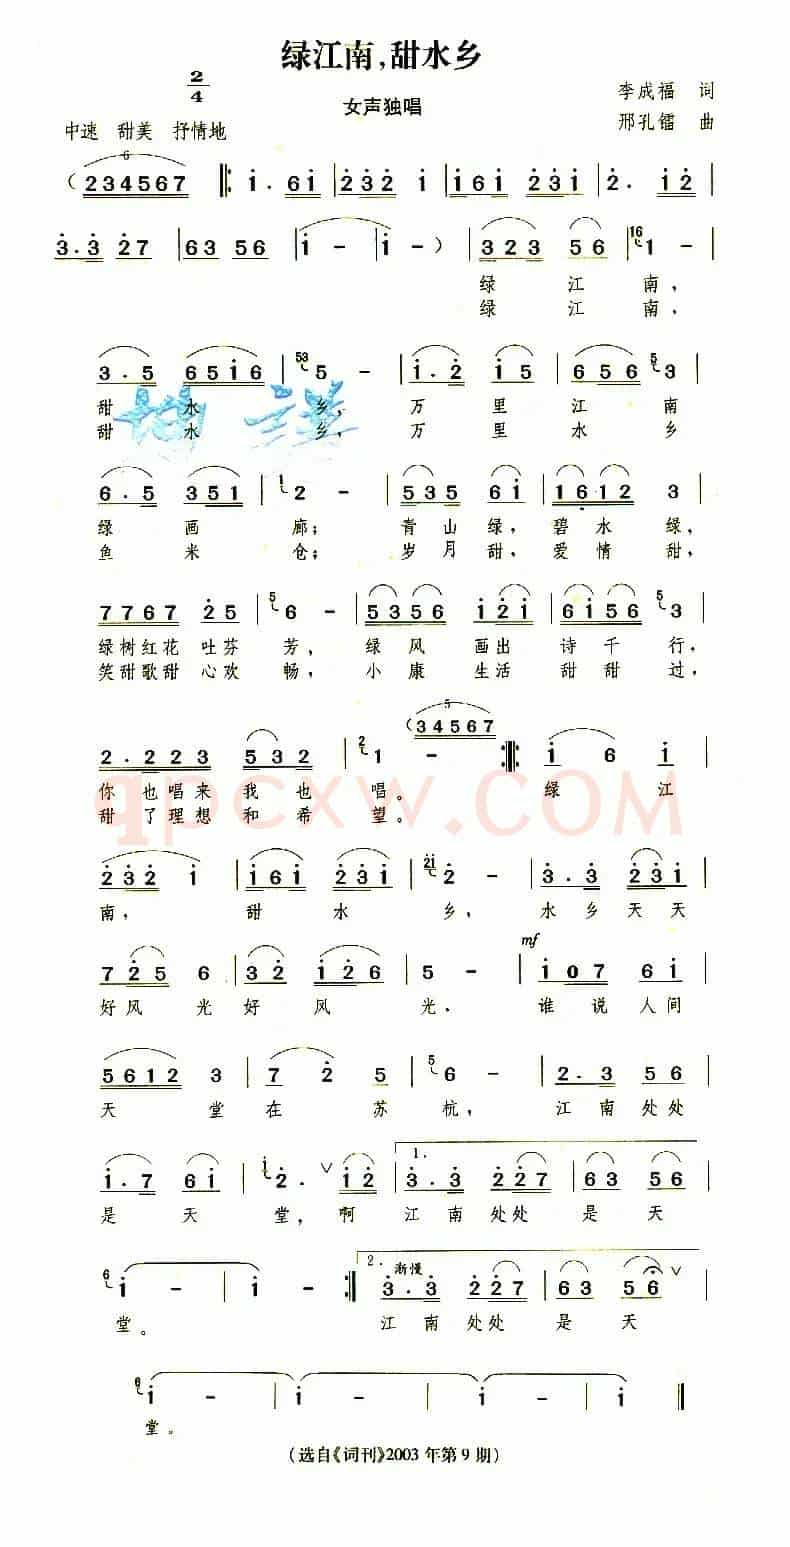 绿江南,甜水乡
2/4
女声独唱
李成福 词
邢孔镭 曲
中速 甜美 抒情地
6
(234567 ‖: i . 6i | 232 i | i6i 23i | 2. i2 |
3.3 27 | 63 56 | i - | i - ) | 323 56 | 16 1 - |
绿 江 南,
绿 江 南,
3.5 6516 | 53 5 - | i.2 i5 | 656 5 3 |
甜 水 乡, 万 里 江 南
甜 水 乡, 万 里 水 乡
6.5 351 | 1 2 - | 535 6i | 1612 3 |
绿 画 廊; 青 山 绿, 碧 水 绿,
鱼 米 仓; 岁 月 甜, 爱 情 甜,
7767 25 | 5 6 - | 5356 i2i | 6i56 5 3 |
绿树红花 吐芬 芳, 绿 风 画出 诗 千 行,
笑甜歌甜 心欢 畅, 小 康 生活 甜 甜 过,
5
2.223 532 | 2 1 - (34567 :‖ i 6 i |
你 也唱来 我 也 唱。 绿 江
甜 了理想 和 希 望。
232 i | i6i 23i | 2i 2 - | 3.3 23i |
南, 甜 水 乡, 水 乡 天 天
mf
725 6 | 32 i26 | 5 - | i07 6i |
好风 光 好 风 光. 谁 说 人间
5612 3 | 7 2 5 | 5 6 - | 2.3 56 |
天 堂 在 苏 杭, 江 南 处处
1.
i.7 6i | i 2. ∨ i2 | 3.3 227 | 63 56 |
是 天 堂, 啊 江 南 处处 是 天
2. 渐慢
6 i - | i - :‖ 3.3 227 | 63 56 ∨ |
堂。 江 南 处处 是 天
6 i - | i - | i - | i - ‖
堂。
(选自《词刊》2003年第9期)
qpcxw.COM